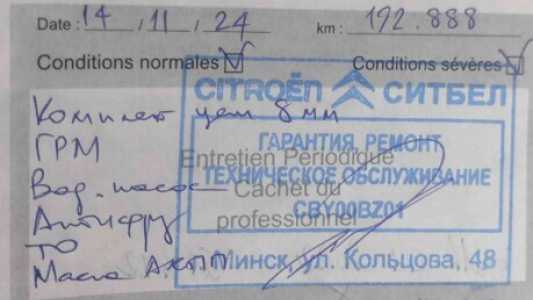 Date : 14 / 11 / 24 km : 192.888
Conditions normales Conditions sévères
CITROËN СИТБЕЛ
Комплект цепи 8 мм
ГРМ
ГАРАНТИЯ, РЕМОНТ
Entretien Périodique
Вод. насос
ТЕХНИЧЕСКОЕ ОБСЛУЖИВАНИЕ
Cachet du
Антифриз
CBY00BZ01
professionnel
ТО
Масло АКПП
Минск, ул. Кольцова, 48